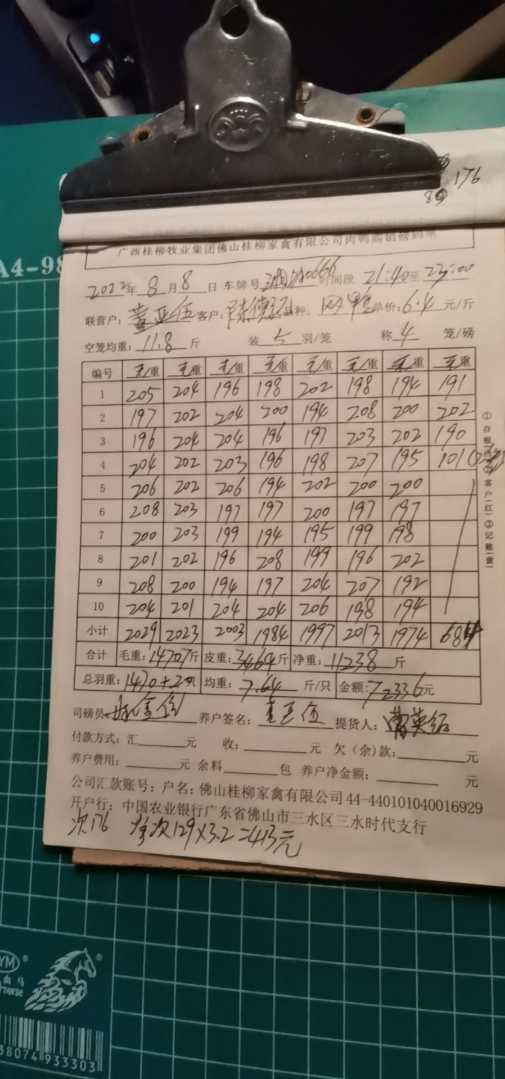 176
A4-98
广西桂柳牧业集团佛山桂柳家禽有限公司肉鸭
2022年 8月 8日 车牌号 时间段 21:40至 23:00
联营户: 客户: 品种: 单价: 6.4 元/斤
空笼均重: 11.8 斤 装 5 羽/笼 称 4 笼/磅
编号 毛/重 毛/重 毛/重 毛/重 毛/重 毛/重 毛/重 毛/重
1 205 204 196 198 202 198 194 191
2 197 202 204 200 194 208 200 202
3 196 204 204 196 197 203 202 190
4 204 202 203 196 198 207 195 101
5 206 202 206 194 202 200 200
6 208 203 197 197 200 197 197
7 200 203 199 194 195 199 198
8 201 202 196 208 199 196 202
9 208 200 194 197 204 207 192
10 204 201 204 204 206 198 194
小计 2029 2023 2003 1984 1997 2013 1974 684
合计 毛重: 14707斤 皮重: 3469斤 净重: 11238 斤
总羽重: 1470+2只 均重: 7.64 斤/只 金额: 72336元
司磅员: 养户签名: 提货人:
付款方式: 汇 元 收: 元 欠(余)款: 元
养户费用: 元 余料 包 养户净金额: 元
公司汇款账号: 户名: 佛山桂柳家禽有限公司 44-440101040016929
开户行: 中国农业银行广东省佛山市三水区三水时代支行
次176 129×3.2=413元
①存根 ②客户(红) ③记账(黄)
YM
38074 933303